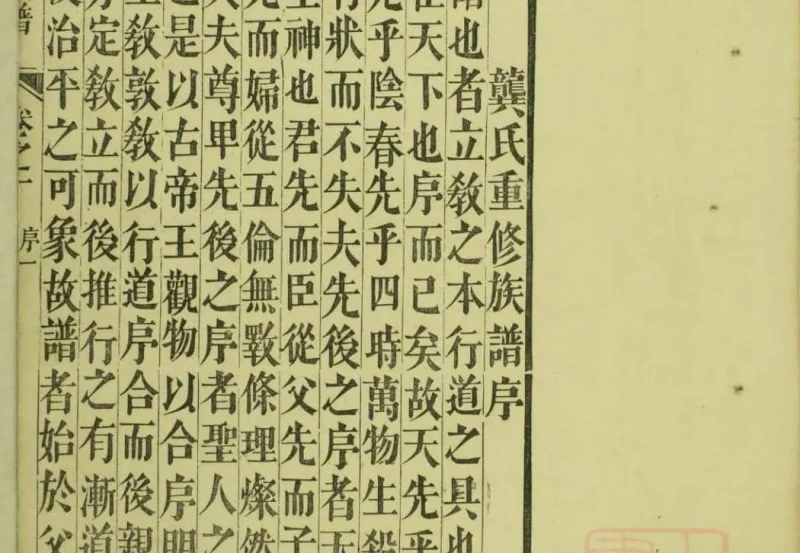 龔氏重修族譜序
譜也者立教之本行道之具也
在天下也序而已矣故天先乎
先乎陰春先乎四時萬物生殺
有狀而不失夫先後之序者天
至神也君先而臣從父先而子
先而婦從五倫無斁條理燦然
大夫尊卑先後之序者聖人之
也是以古帝王觀物以合序明
立敎敦敎以行道序合而後親
分定敎立而後推行之有漸道
後治平之可象故譜者始於父
譜
卷之一
序一